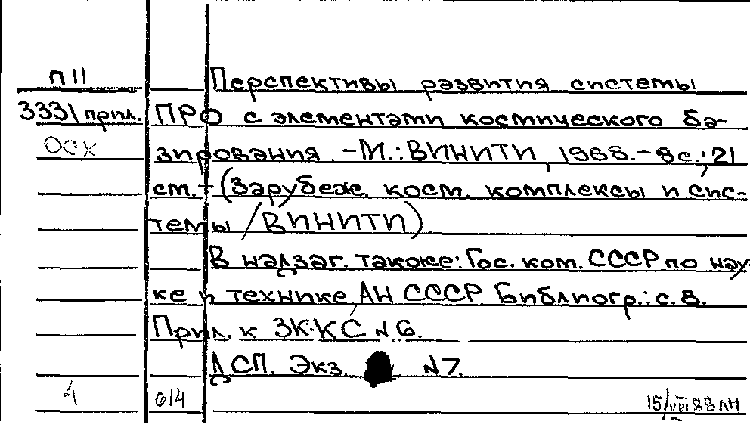 П11
Перспективы развития системы
3331 прил. ПРО с элементами космического ба-
ОСХ зирования. - М.: ВИНИТИ, 1988. - 8 с.; 21
см. - (Зарубеж. косм. комплексы и сис-
темы / ВИНИТИ)
В надзаг. также: Гос. ком. СССР по нау-
ке и технике, АН СССР. Библиогр.: с. 8.
Прил. к ЗК-КС №6.
ДСП. Экз. №7.
4 614 15/VIII 88 ЛН